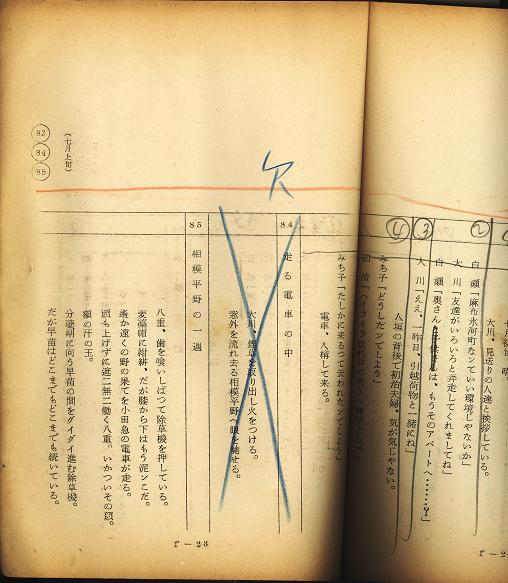 大川、見送りの人達と挨拶している。
②
白瀬「麻布氷河町なンていい環境じゃないか」
大川「友達がいろいろと奔走してくれましてね」
③
白瀬「奥さん、もうそのアパートへ……？」
大川「ええ、一昨日、引越荷物と一緒にね」
④
人垣の背後で初治夫婦、気が気じゃない。
みち子「どうしたンでしょう」
初治
みち子「たしかに来るって云われたンでしょう」
電車、入構して来る。
欠
84 走る電車の中
大川、煙草を取り出し火をつける。
窓外を流れ去る相模平野へ眼を馳せる。
85 相模平野の一遇
八重、歯を喰いしばって除草機を押している。
麦藁帽に紺絣、だが膝から下はもう泥ンこだ。
遙か遠くの野の果てを小田急の電車が走る。
顔も上げずに遮二無二働く八重。いかついその顔。
額の汗の玉。
分蘖期に向う早苗の間をグイグイ進む除草機。
だが早苗はどこまでもどこまでも続いている。
(七月上旬)
83
84
85
f－23
f－2